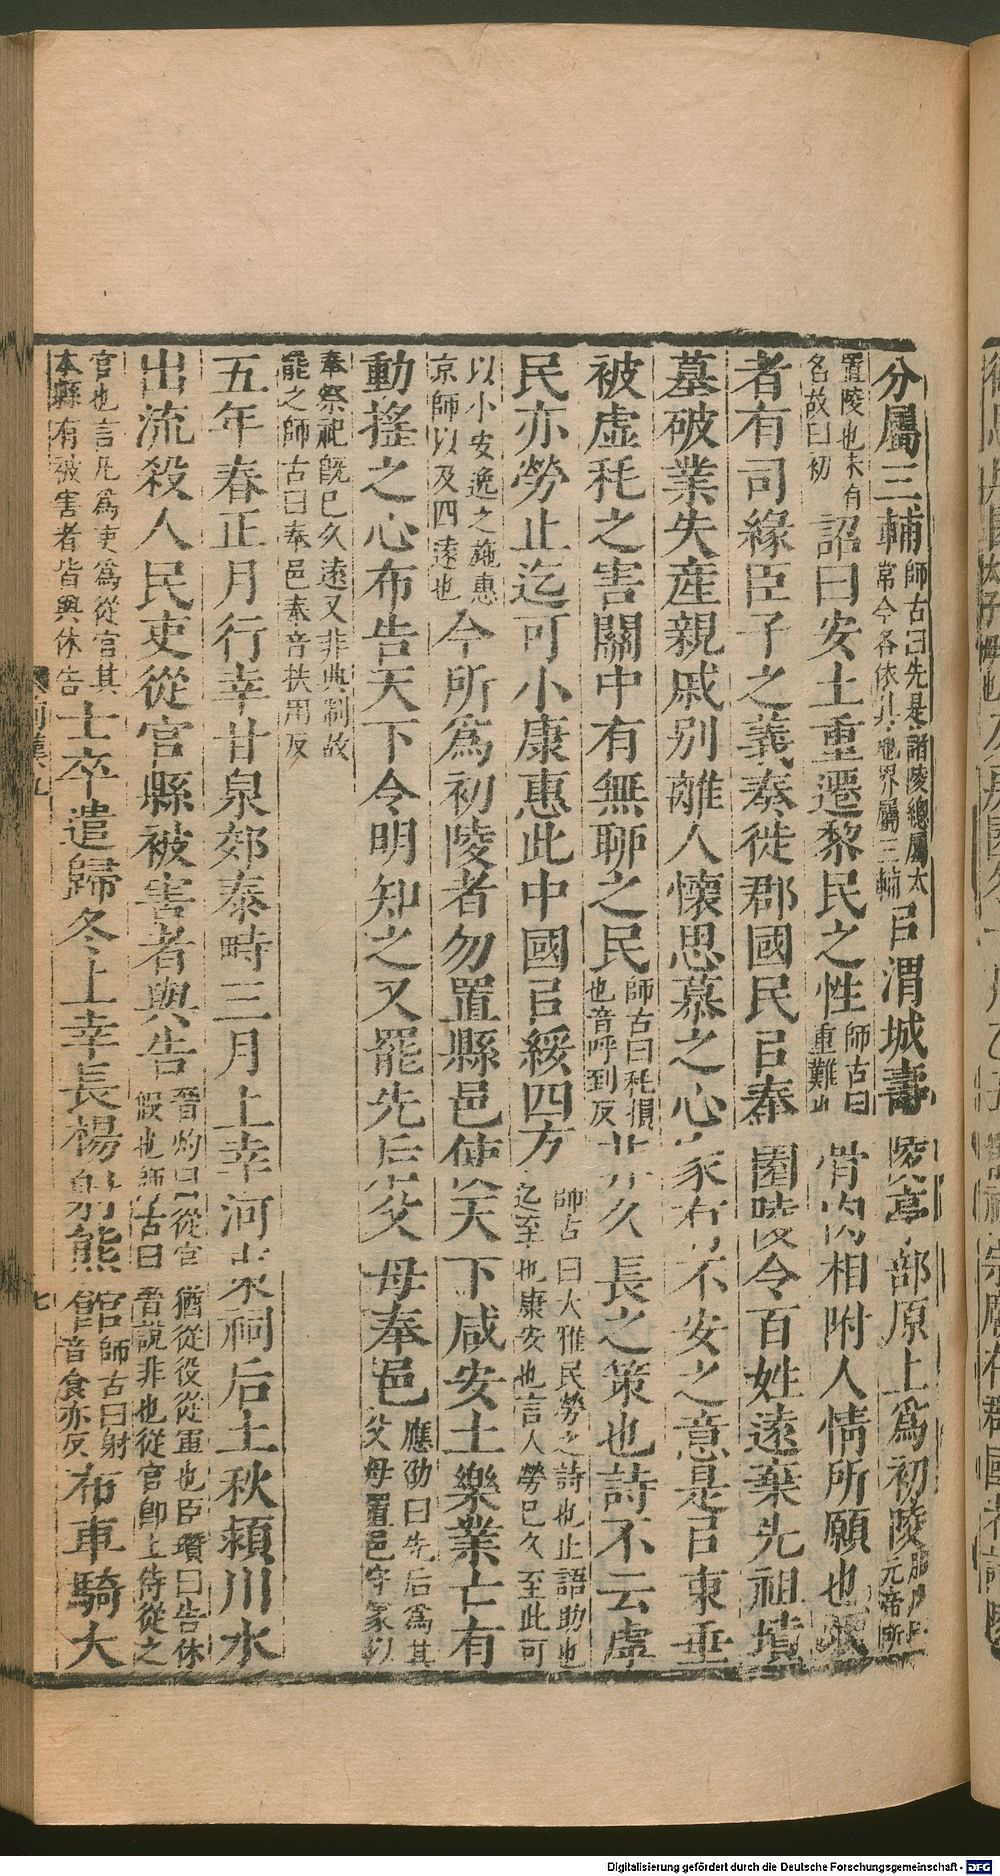 分屬三輔師古曰先是諸陵總屬太常今各依其地界屬三輔㠯渭城壽陵亭部原上爲初陵服虔曰元帝所
置陵也未有名故曰初詔曰安土重遷黎民之性師古曰重難也骨肉相附人情所願也頃
者有司緣臣子之義奏徙郡國民㠯奉園陵令百姓遠棄先祖墳
墓破業失産親戚別離人懷思慕之心家有不安之意是㠯東垂
被虛秏之害關中有無聊之民師古曰秏損也音呼到反非久長之策也詩不云虖
民亦勞止迄可小康惠此中國㠯綏四方師古曰大雅民勞之詩也止語助也迄至也康安也言人勞已久至此可
以小安逸之施惠京師以及四遠也今所爲初陵者勿置縣邑使天下咸安土樂業亡有
動搖之心布告天下令明知之又罷先后父母奉邑應劭曰先后爲其父母置邑守冢以
奉祭祀旣已久遠又非典制故罷之師古曰奉邑奉音扶用反
五年春正月行幸甘泉郊泰畤三月上幸河東祠后土秋潁川水
出流殺人民吏從官縣被害者與告晉灼曰從官猶從役從軍也臣瓚曰告休假也師古曰晉說非也從官卽上侍從之
官也言凡爲吏爲從官其本縣有被害者皆與休告士卒遣歸冬上幸長楊射熊館師古曰射音食亦反布車騎大
前漢九
七
Digitalisierung gefördert durch die Deutsche Forschungsgemeinschaft - DFG